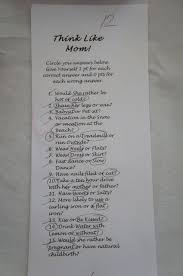 12
Think Like
Mom!
Circle your answers below.
Give yourself 1 pt for each
correct answer and 0 pts for
each wrong answer.
1. Would she rather be
hot or cold?
2. Shave her legs or wax?
3. Babysit or Pet sit?
4. Vacation in the Snow
or vacation at the
beach?
5. Run on a Treadmill or
run Outside?
6. Wear Heels or Flats?
7. Wear Dress or Skirt?
8. Fast dance or Slow
Dance?
9. Have nails filed or cut?
10. Take a ten hour drive
with her mother or father?
11. Have Sweet or Salty?
12. More likely to use a
curling iron or a flat
iron?
13. Kiss or Be Kissed?
14. Drink Water with
Lemon or without?
15. Would she rather be
pregnant or have natural
childbirth?